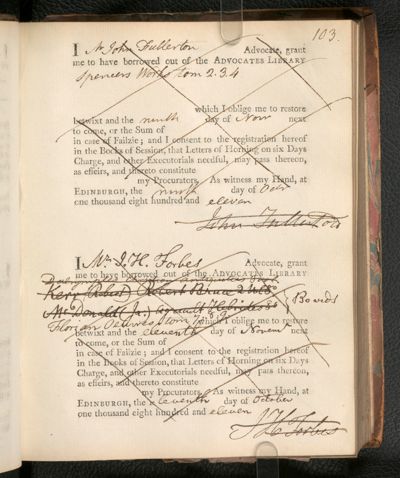 103.
I Mr John Fullerton Advocate, grant
me to have borrowed out of the ADVOCATES LIBRARY
Spencers Works tom 2.3.4
which I oblige me to restore
betwixt and the ninth day of Novr next
to come, or the Sum of
in case of Failzie; and I consent to the registration hereof
in the Books of Session, that Letters of Horning on six Days
Charge, and other Executorials needful, may pass thereon,
as effeirs, and thereto constitute
my Procurators. As witness my Hand, at
EDINBURGH, the ninth day of Octr
one thousand eight hundred and eleven
John Fullerton
I Mr J. H. Forbes Advocate, grant
me to have borrowed out of the ADVOCATES LIBRARY
Kerr (Robert) Robert Bruce 2 vols
McDonald (Jn.) Hebrides 80
Bo vids
Florian Oeuvres tom which I oblige me to restore
betwixt and the eleventh day of Novemr next
to come, or the Sum of
in case of Failzie; and I consent to the registration hereof
in the Books of Session, that Letters of Horning on six Days
Charge, and other Executorials needful, may pass thereon,
as effeirs, and thereto constitute
my Procurators. As witness my Hand, at
EDINBURGH, the eleventh day of October
one thousand eight hundred and eleven
J H Forbes